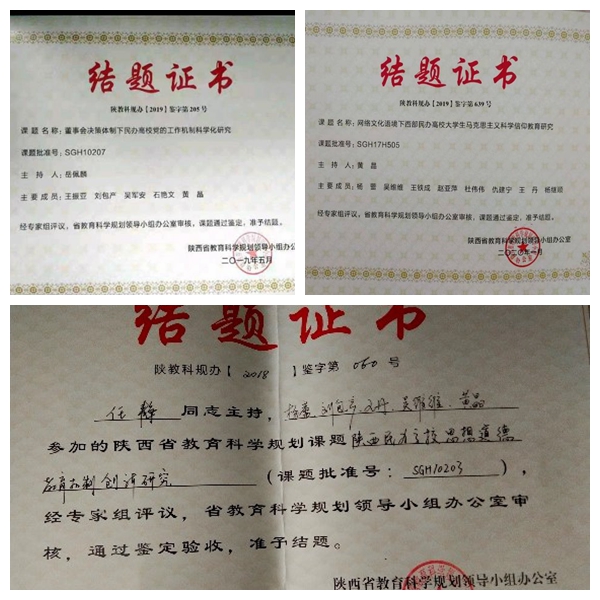 结题证书
陕教科规办【2019】鉴字第 205 号
课 题 名 称：董事会决策体制下民办高校党的工作机制科学化研究
课题批准号：SGH10207
主 持 人：岳佩麟
主 要 成 员：王振亚 刘包产 吴军安 石艳文 黄 晶
经专家组评议，省教育科学规划领导小组办公室审核，课题通过鉴定，准予结题。
陕西省教育科学规划领导小组办公
二〇一九年五月
结题证书
陕教科规办【2019】鉴字第 639 号
课 题 名 称：网络文化语境下西部民办高校大学生马克思主义科学信仰教育研究
课题批准号：SGH17H505
主 持 人：黄 晶
主 要 成 员：杨 蕾 吴维维 王铁成 赵亚萍 杜伟伟 仇建宁 王 丹 杨继顺
经专家组评议，省教育科学规划领导小组办公室审核，课题通过鉴定，准予结题。
陕西省教育科学规划领导小组办公室
二〇二〇年一月
结题证书
陕教科规办【2018】鉴字第 060 号
任静 同志主持，杨蕾、刘包产、王丹、吴维维、黄晶
参加的陕西省教育科学规划课题 陕西民办高校思想道德
教育机制创新研究（课题批准号：SGH10203），
经专家组评议，省教育科学规划领导小组办公室审
核，通过鉴定验收，准予结题。
陕西省教育科学规划领导小组办公室